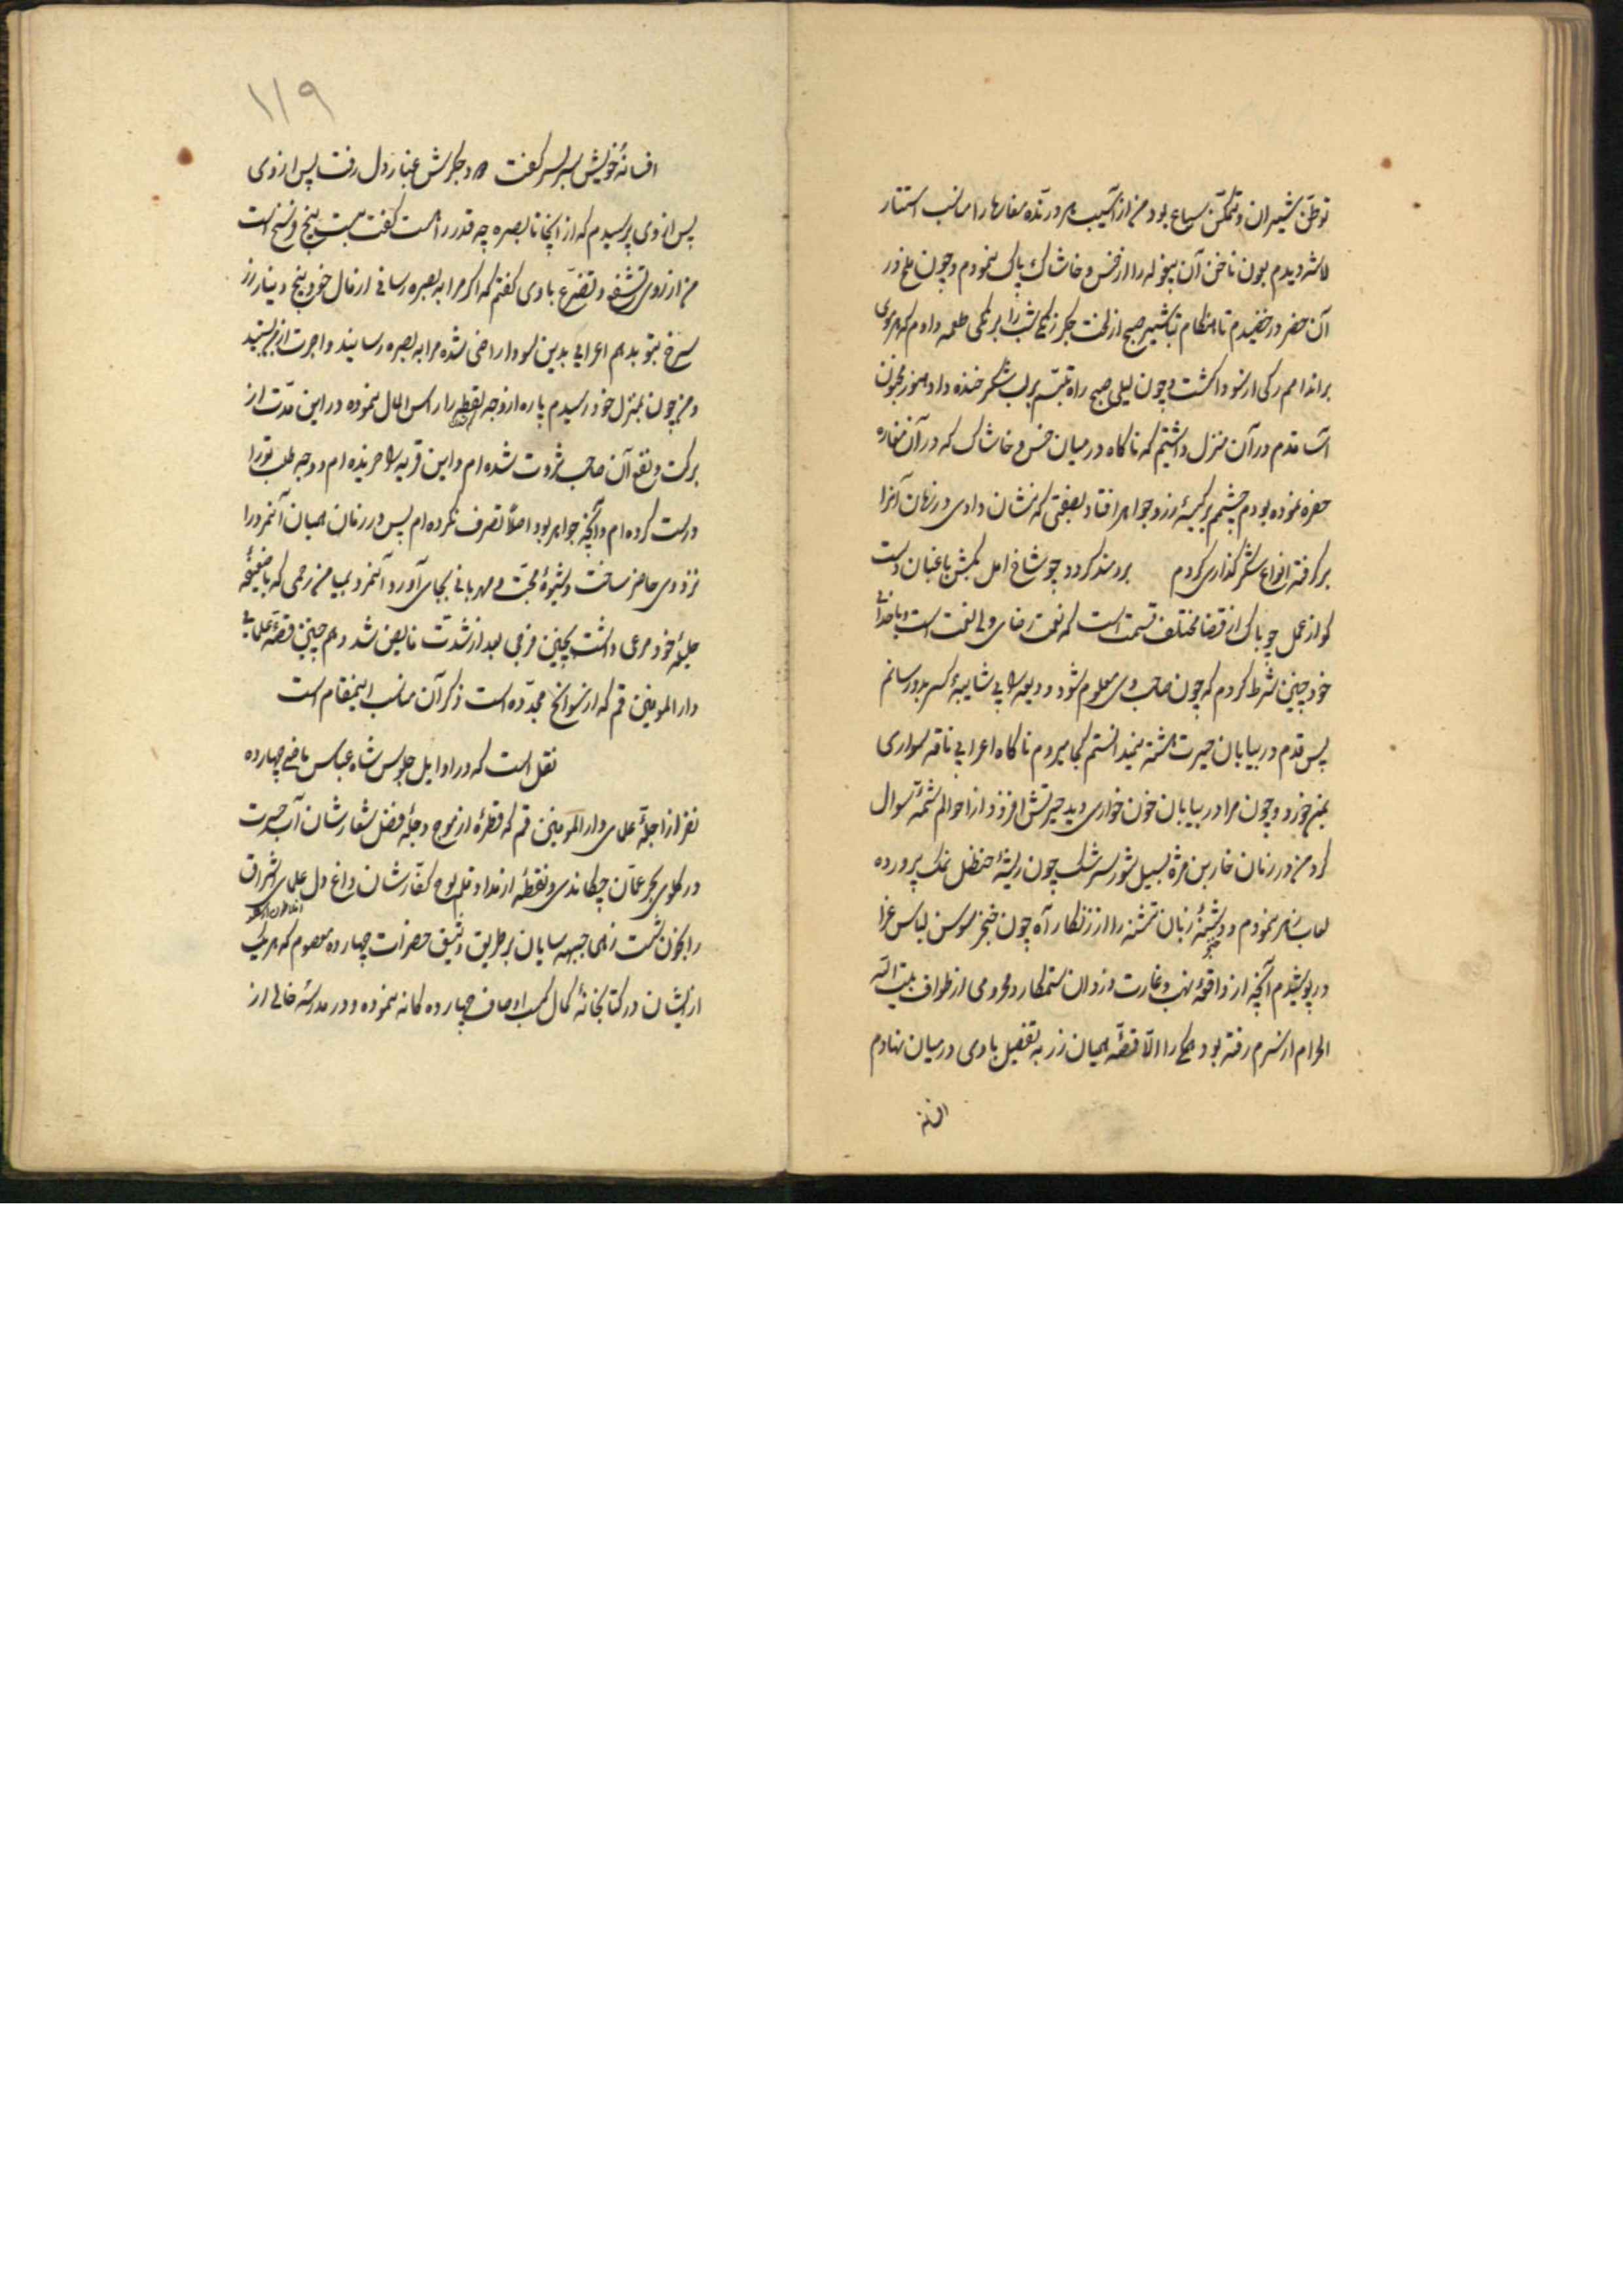 توطن شیران و تمکن سباع بود من از آسیب هر درنده مغارها را مناسب استتار
دیدم بون ناخن آن بیغوله را از خس و خاشاک پاک نمودم و چون ملخ در
آن حفر در خفیدم تا هنگام تباشیر صبح از لخت جکر زنگی شب را طعمه دادم که هر موی
بر اندامم رکی از سودا کشت و چون لیلی صبح راه تبسم بر لب شکر خنده داد هنوز مجنون
قدم در آن منزل داشتم که ناکاه در میان خس و خاشاک که در آن مغاره
حفره نموده بودم چشمم بر کیسهٔ زر و جواهر افتاد بصفتی که نشان دادی در زمان آنرا
بر کرفته انواع شکر کذاری کردم برومند کردد چو شاخ امل بکش باغبان دست
کو از عمل چو باک از قضا مختلف قسمت است که نعمت رضای ولی نعمت است و با خدای
خود چنین شرط کردم که چون صاحب وی معلوم شود ودیعه را بی شایبهٔ کسر بدو رسانم
پس قدم در بیابان حیرت هشته نمیدانستم کجا میروم ناکاه اعرابی ناقه سواری
بمن خورد و چون مرا در بیابان خون خواری دید حیرتش افزود از احوالم شمهٔ سوال
کرد من در زمان خار بن مژه بسیل شور سرشک چون ریشهٔ حنظل نمک پرورده
نمودم و دشنهٔ زبان تشنه را از زنکار آه چون خنجر سوسن لباس عزا
در پوشیدم آنچه از واقعهٔ نهب و غارت دزدان ستمکار و محرومی از طواف بیت الله
الحرام از سرم رفته بود همکی را الا قصهٔ همیان زر به تفصیل با وی در میان نهادم
افسانه
۱۱۹
افسانهٔ خویش سر بسر کفت وز جکرش غبار دل رفت پس از وی
پس از وی پرسیدم که از اینجا تا بصره چه قدر راهست کفت بیست پنج فرسخ است
من از روی تشفع و تضرع با وی کفتم که اکر مرا به بصره رسانی از مال خود پنج دینار زر
سرخ بتو بدهم اعرابی بدین سودا راضی شده مرا به بصره رسانید و اجرت از من ستید
و من چون بمنزل خود رسیدم پاره از وجه لقطه را راس المال نموده در این مدت از
برکت و نفع آن صاحب ثروت شده ام و این قریه را خریده ام و وجه طلب تو را
درست کرده ام و آنچه جواهر بود اصلاً تصرف نکرده ام پس در زمان همیان آنمرد را
نزد وی حاضر ساخت و شیوهٔ محبت و مهربانی بجای آورد و آنمرد بمیامن رحمی که با ضعیفهٔ
جلیلهٔ خود مرعی داشت بچنین فرجی بعد از شدت فایض شد و هم چنین قصهٔ علمای
دار المومنین قم که از سوانح مجدده است ذکر آن مناسب اینمقام است
نقل است که در اوایل جلوس شاه عباس ماضی چهارده
نفر از اجلهٔ علمای دار المومنین قم که قطرهٔ از موج دجلهٔ فضل شعارشان آب حسرت
در کلوی بحر عمان چکاندی و نقطهٔ از مداد قلم لوح کفتارشان داغ دل علمای اشراق
را بخون نشست زهی جبهه سایان بر طریق وثیق حضرات چهارده معصوم که هر یک
از ایشان در کتابخانهٔ کمال کسب اوصاف چهارده کانه نموده و در مدرسهٔ خالی از